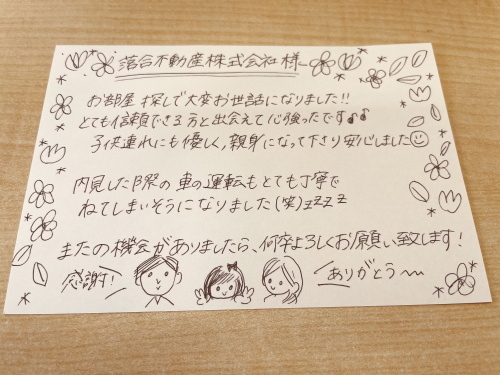 落合不動産株式会社 様
お部屋探しで大変お世話になりました!!
とても信頼できる方と出会えて心強かったです♪♪
子供連れにも優しく、親身になって下さり安心しました☺
内見した際の車の運転もとても丁寧で
ねてしまいそうになりました(笑)zzzz
またの機会がありましたら、何卒よろしくお願い致します!
感謝!
ありがとう〜